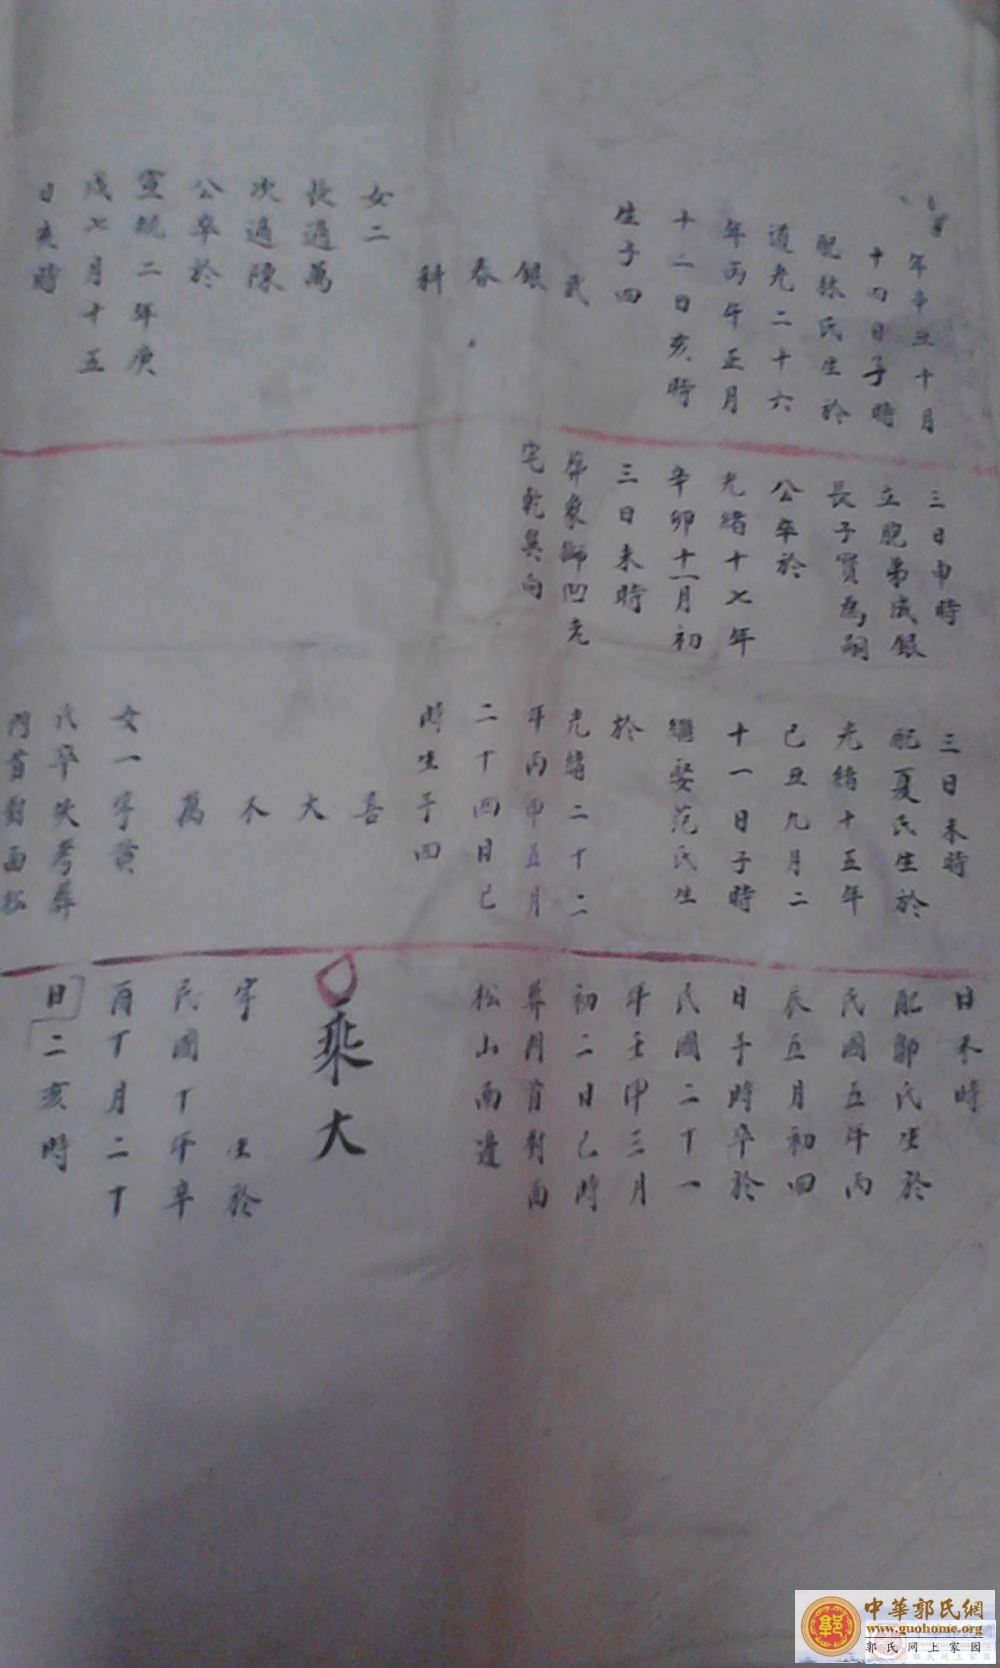 年辛丑十月
十四日子時
配林氏生於
道光二十六
年丙午正月
十二日亥時
生子四
武
銀
春
科
女二
長適萬
次適陳
公卒於
宣統二年庚
戌七月十五
日亥時
三日申時
立胞弟成銀
長子寶為嗣
公卒於
光緒十七年
辛卯十一月初
三日未時
葬象獅凹老
宅乾巽向
三日未時
配夏氏生於
光緒十五年
己丑九月二
十一日子時
繼娶范氏生
於
光緒二十二
年丙申五月
二十四日巳
時生子四
大
不
萬
女一字黄
氏卒失考葬
門首對面松
日未時
配鄒氏生於
民國五年丙
辰五月初四
日子時卒於
民國二十一
年壬申三月
初二日巳時
葬門首對面
松山南邊
乘大
字 生於
民國丁年卒
酉丁月二十
日二亥時
中華郭氏網
www.guohome.org
郭氏网上家园